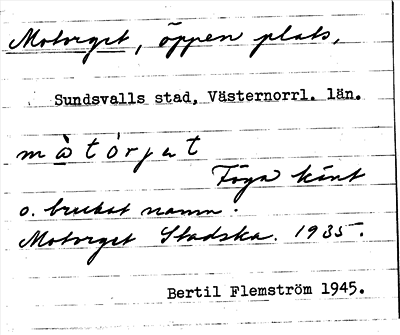 Motorget, öppen plats,
Sundsvalls stad, Västernorrl. län.
mɷ̀tórjət
Föga känt
o. brukat namn.
Motorget Stadska. 1935.
Bertil Flemström 1945.